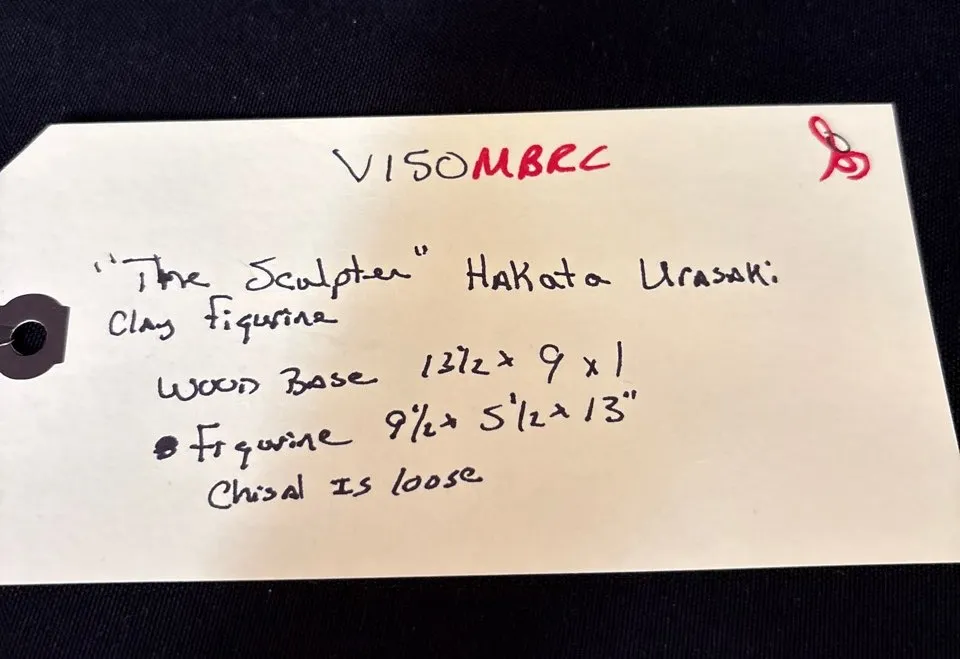 V150MBRC
"The Sculpter" Hakata Urasaki
Clay Figurine
Wood Base 13 1/2 x 9 x 1
• Figurine 9 1/2 x 5 1/2 x 13"
Chisal Is loose